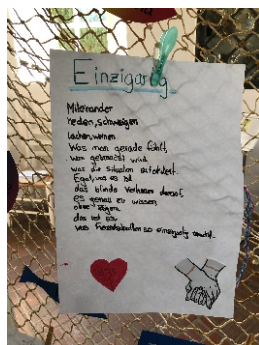 Einzigartig
Miteinander
reden, schweigen
lachen, weinen
Was man gerade fühlt,
was gebraucht wird
was die Situation erfordert.
Egal, was es ist
das blinde Vertrauen darauf,
es genau zu wissen
ohne Fragen
das ist es,
was so einzigartig macht.